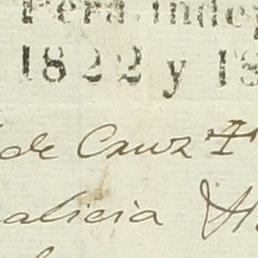 Perú Indep
1822 y 18
de Cruz
alicia H.